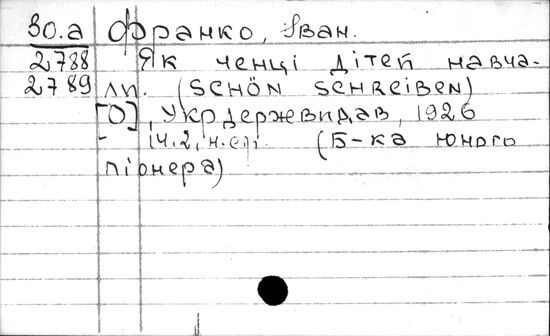 30.а Франко, Іван.
2788 Як ченці дітей навча-
2789 ли. (SCHÖN SCHREIBEN)
[О], Укрдержвидав, 1926
(Б-ка юного
піонера)